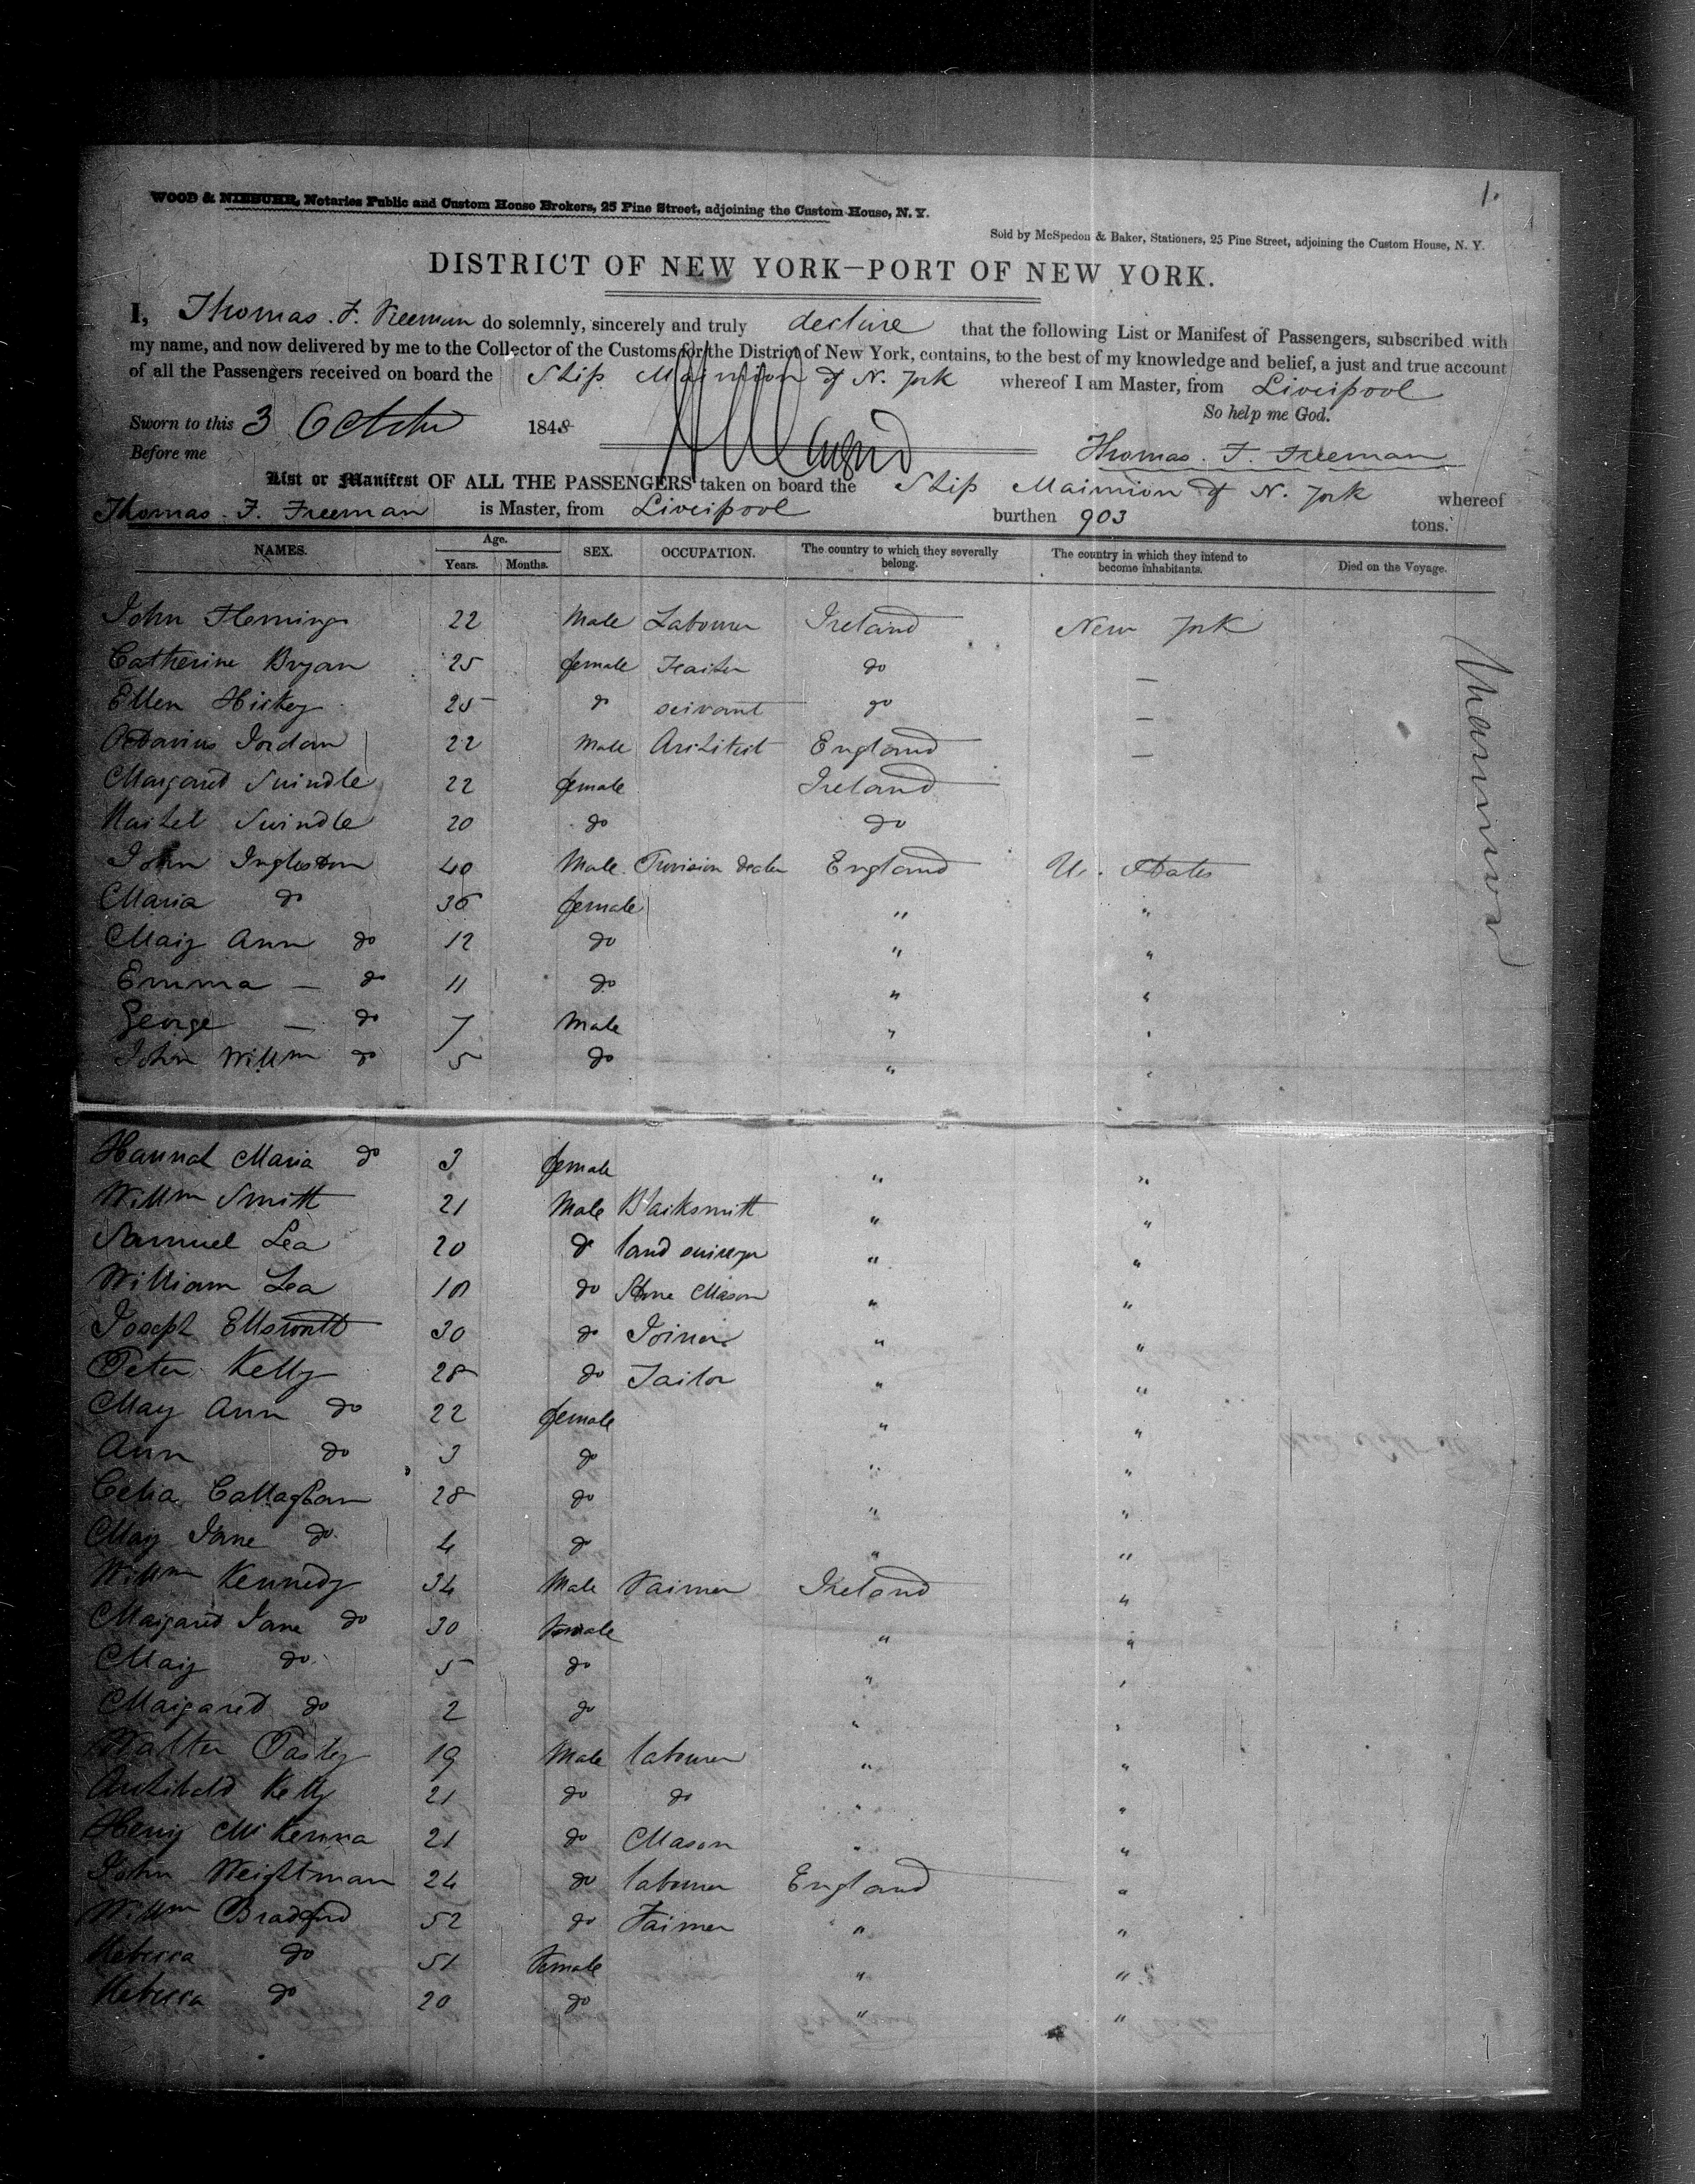 1.
WOOD & NIEBUHR, Notaries Public and Custom House Brokers, 25 Pine Street, adjoining the Custom House, N. Y.
Sold by McSpedon & Baker, Stationers, 25 Pine Street, adjoining the Custom House, N. Y.
DISTRICT OF NEW YORK—PORT OF NEW YORK.
I, Thomas. F. Freeman do solemnly, sincerely and truly declare that the following List or Manifest of Passengers, subscribed with
my name, and now delivered by me to the Collector of the Customs for the District of New York, contains, to the best of my knowledge and belief, a just and true account
of all the Passengers received on board the Ship Marmion of N. York whereof I am Master, from Liverpool
So help me God.
Sworn to this 3 October 1848
Thomas. F. Freeman
Before me
List or Manifest OF ALL THE PASSENGERS taken on board the Ship Marmion of N. York whereof
Thomas. F. Freeman is Master, from Liverpool burthen 903 tons.
NAMES. Age. Years. Months. SEX. OCCUPATION. The country to which they severally belong. The country in which they intend to become inhabitants. Died on the Voyage.
John Fleming 22 Male Labourer Ireland New York
Catherine Bryan 25 female do —
Ellen Hickey 25 do servant do —
Octavius Jordan 22 Male Architect England —
Margaret Swindle 22 female Ireland
Rachel Swindle 20 do do
John Ingleston 40 Male Provision dealer England U. States
Maria do 36 female " "
Mary Ann do 12 do " "
Emma — do 11 do " "
George — do 7 Male " "
John Willm do 5 do " "
Hannah Maria do 3 female " "
Willm Smith 21 Male Blacksmith " "
Samuel Lea 20 do land surveyor " "
William Lea 18 do Stone Mason " "
Joseph Ellsworth 30 do Joiner " "
Peter Kelly 28 do Tailor " "
Mary Ann do 22 female " "
Ann do 3 do " "
Celia Callaghan 28 do " "
Mary Jane do 4 do " "
Willm Kennedy 34 Male Farmer Ireland "
Margaret Jane do 30 female " "
Mary do 5 do " "
Margaret do 2 do " "
Walter Pasley 19 Male labourer " "
Archibald Kelly 21 do do " "
Henry McKenna 21 do Mason " "
John Weightman 24 do labourer England "
Willm Bradford 52 do Farmer " "
Rebecca do 51 Female " "
Rebecca do 20 do " "
Marmion